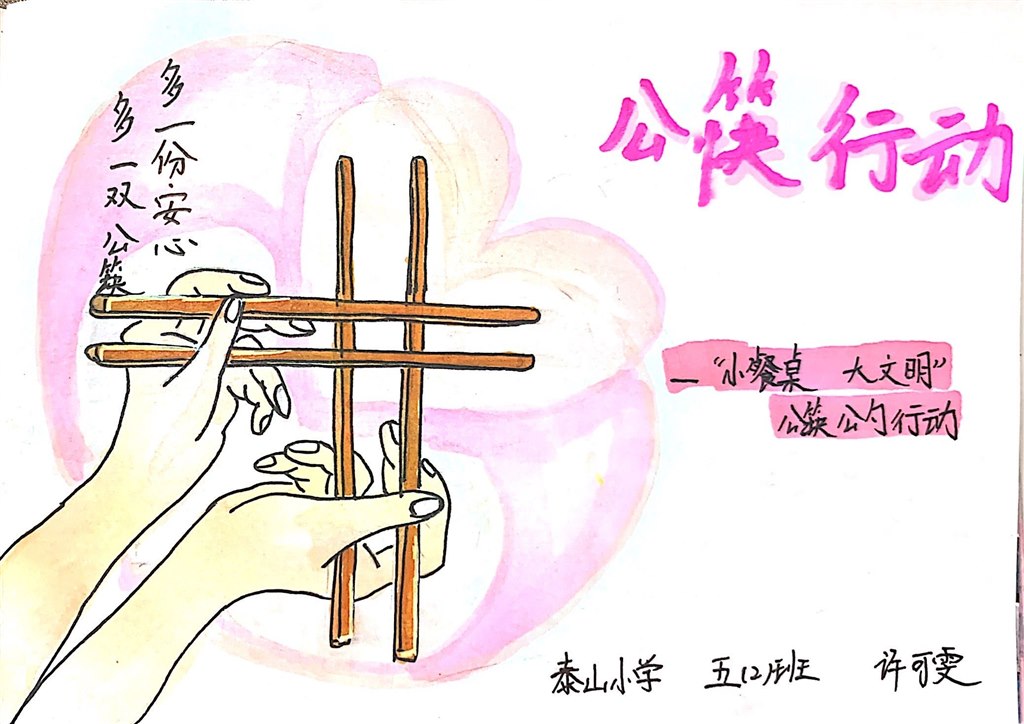 公筷行动
多一份安心
多一双公筷
—“小餐桌 大文明”
公筷公勺行动
泰山小学 五(2)班 许可雯